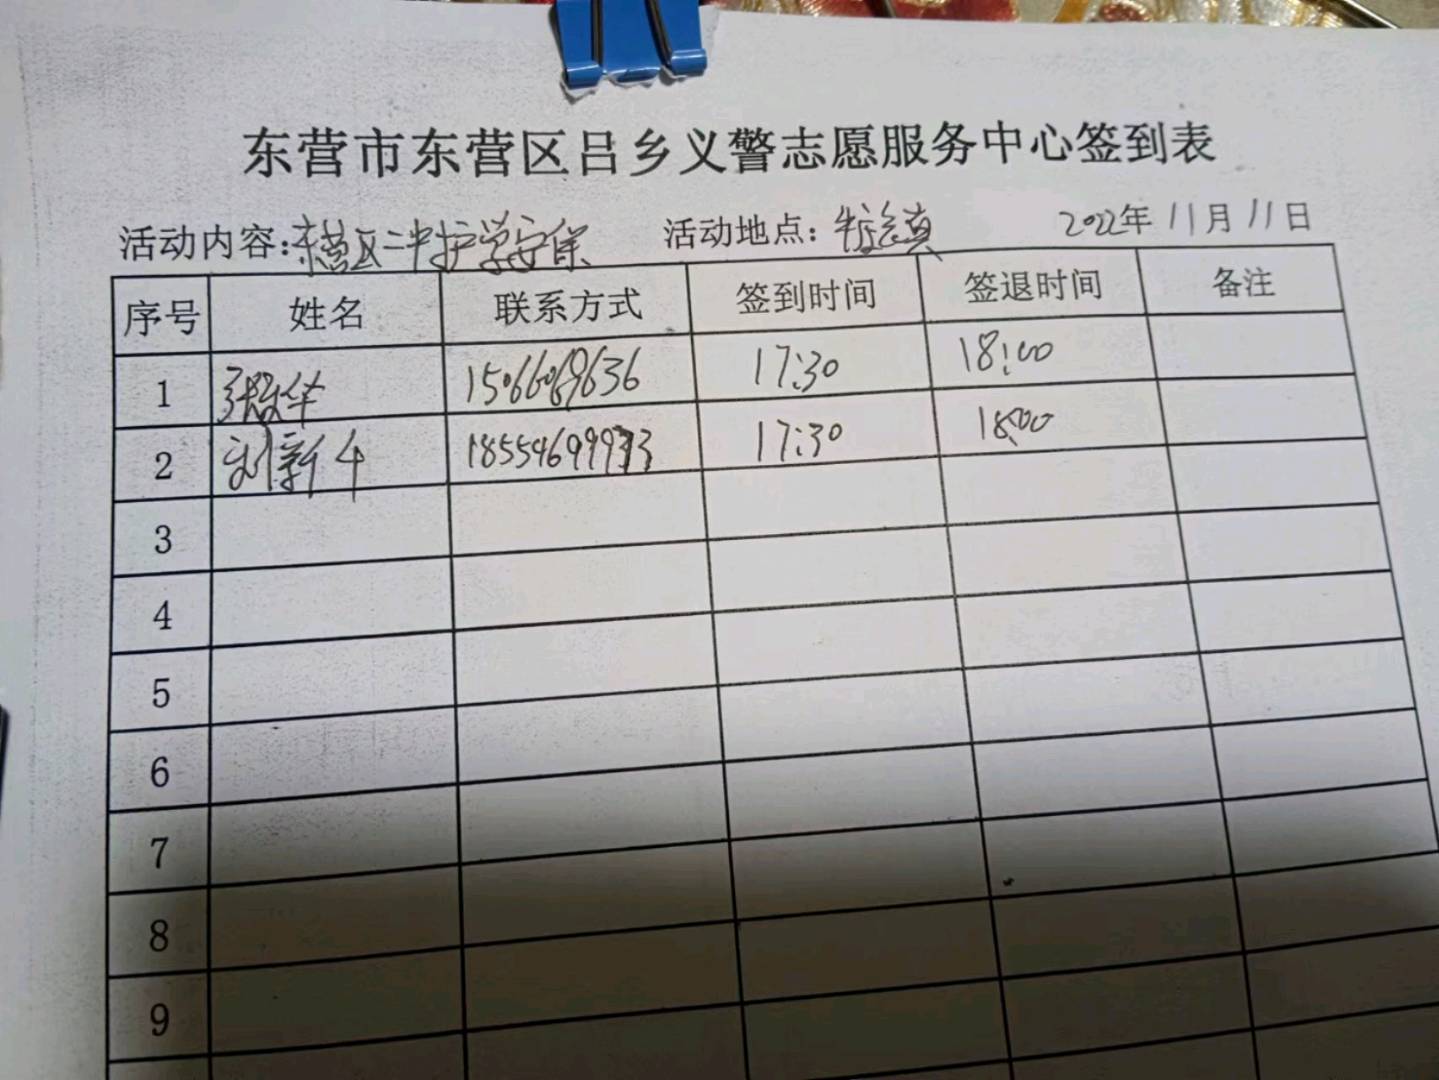 东营市东营区吕乡义警志愿服务中心签到表
活动内容:东营区二中护学安保 活动地点: 牛庄镇 2022年 11月 11日
序号 姓名 联系方式 签到时间 签退时间 备注
1 17:30 18:00
2 刘新牛 17:30 18:00
3
4
5
6
7
8
9